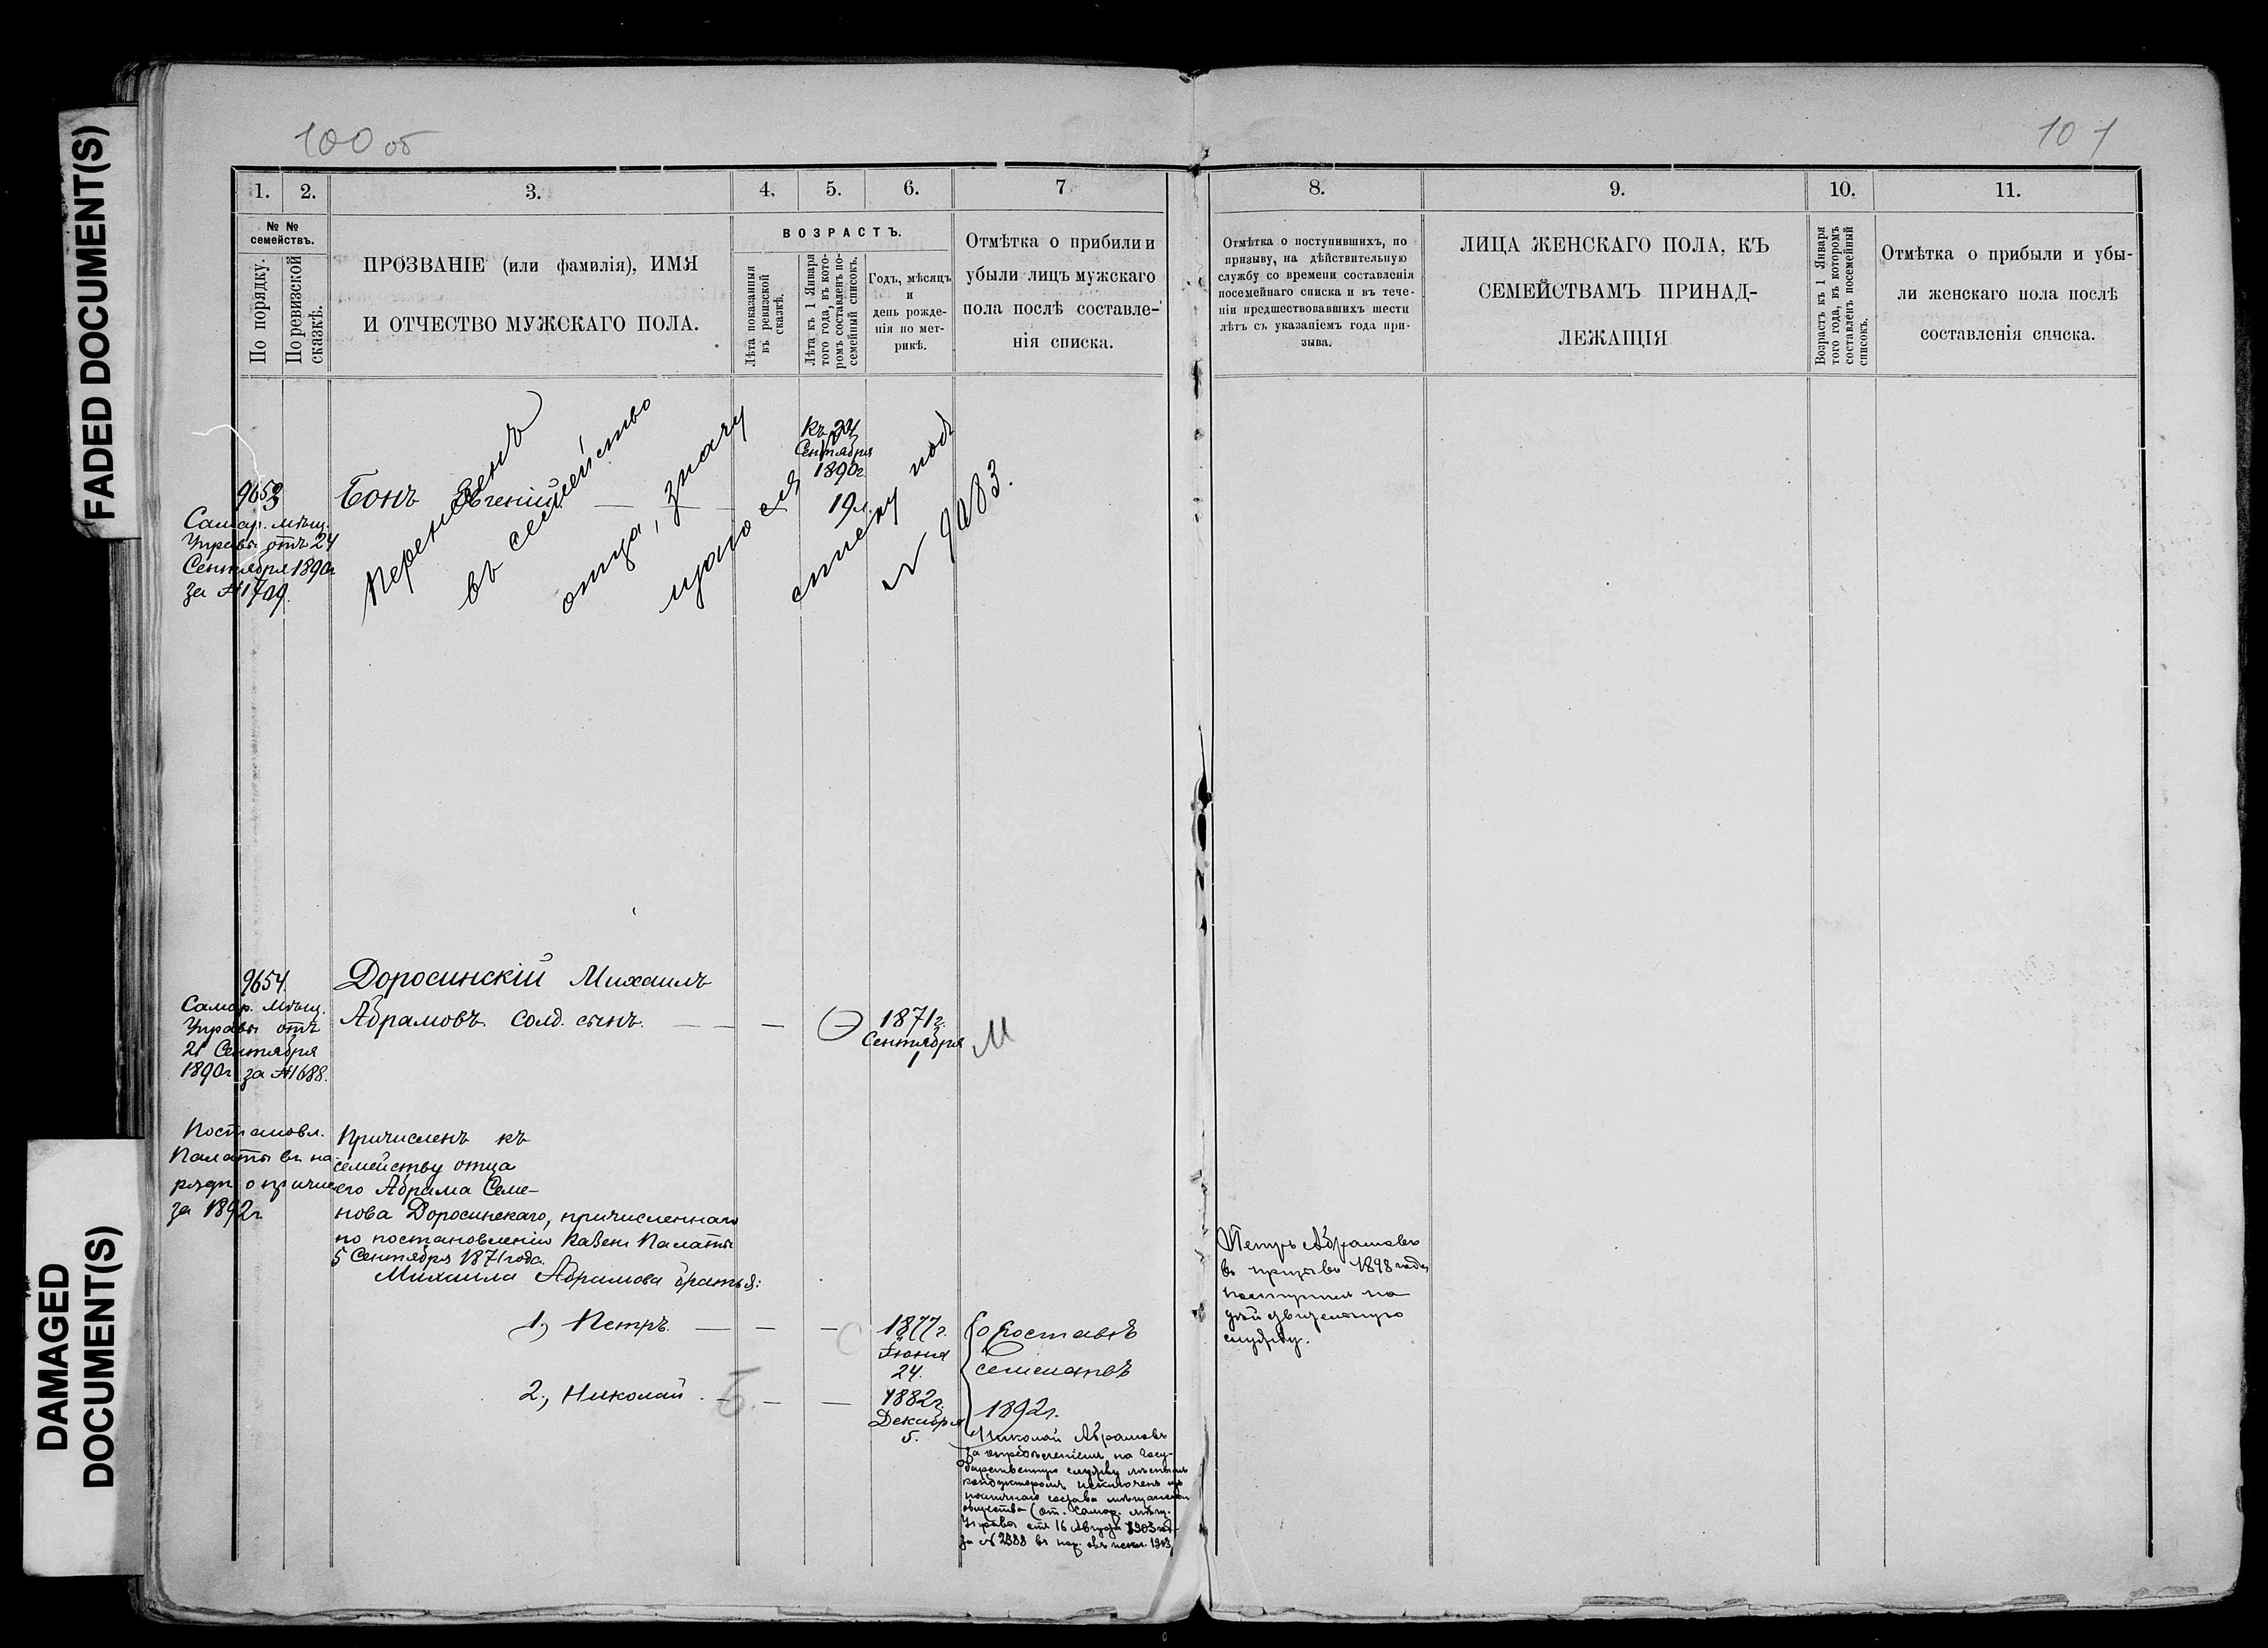 FADED DOCUMENT(S)
DAMAGED
DOCUMENT(S)
100 об
101
1.
2.
3.
4.
5.
6.
7
8.
9.
10.
11.
№ №
семействъ.
По порядку.
По ревизской
сказкѣ.
ПРОЗВАНІЕ (или фамилія), ИМЯ
И ОТЧЕСТВО МУЖСКАГО ПОЛА.
ВОЗРАСТЪ.
Лѣта показанныя
въ ревизской
сказкѣ.
Лѣта къ 1 Января
того года, въ кото-
ромъ составленъ по-
семейный списокъ.
Годъ, мѣсяцъ
и
день рожде-
нія по мет-
рикѣ.
Отмѣтка о прибыли и
убыли лицъ мужскаго
пола послѣ составле-
нія списка.
Отмѣтка о поступившихъ, по
призыву, на дѣйствительную
службу со времени составленія
посемейнаго списка и въ тече-
ніи предшествовавшихъ шести
лѣтъ съ указаніемъ года при-
зыва.
ЛИЦА ЖЕНСКАГО ПОЛА, КЪ
СЕМЕЙСТВАМЪ ПРИНАД-
ЛЕЖАЩІЯ
Возрастъ къ 1 Января
того года, въ которомъ
составленъ посемейный
списокъ.
Отмѣтка о прибыли и убы-
ли женскаго пола послѣ
составленія списка.
9653
Самар. мѣщ.
Управы отъ 24
Сентября 1890г
за №1709.
Бонъ Евгеній
Къ 24
Сентября
1890г
19л
Перенесенъ
въ семейство
отца, значу
щагося
списку подъ
№ 9083.
9654.
Самар. мѣщ.
Управы отъ
21 Сентября
1890г за №1688.
Доросинскій Михаилъ
Абрамовъ солд. сынъ.
1871г.
Сентября
1
М
Постановл.
Палаты въ на-
рядѣ о причис
за 1892г
Причисленъ къ
семейству отца
его Абрама Семе-
нова Доросинскаго, причисленнаго
по постановленію Казен Палаты
5 Сентября 1871 года.
Михаила Абрамова братья:
1, Петръ.
1877г.
Іюня
24.
2, Николай.
Б.
1882г
Декабря
5.
О составѣ
1892г.
Николай Абрамовъ
за опредѣленіемъ на Госу-
дарственную службу
кондукторомъ исключенъ изъ
состава мѣщанскаго
общества (от. Самар. мѣщ.
Управы отъ 16 Августа 1903 год
за № 2388 въ нар. объ искл. 1903
Петръ Абрамовъ
въ призывъ 1898 года
поступилъ на
дѣйствительную
службу.